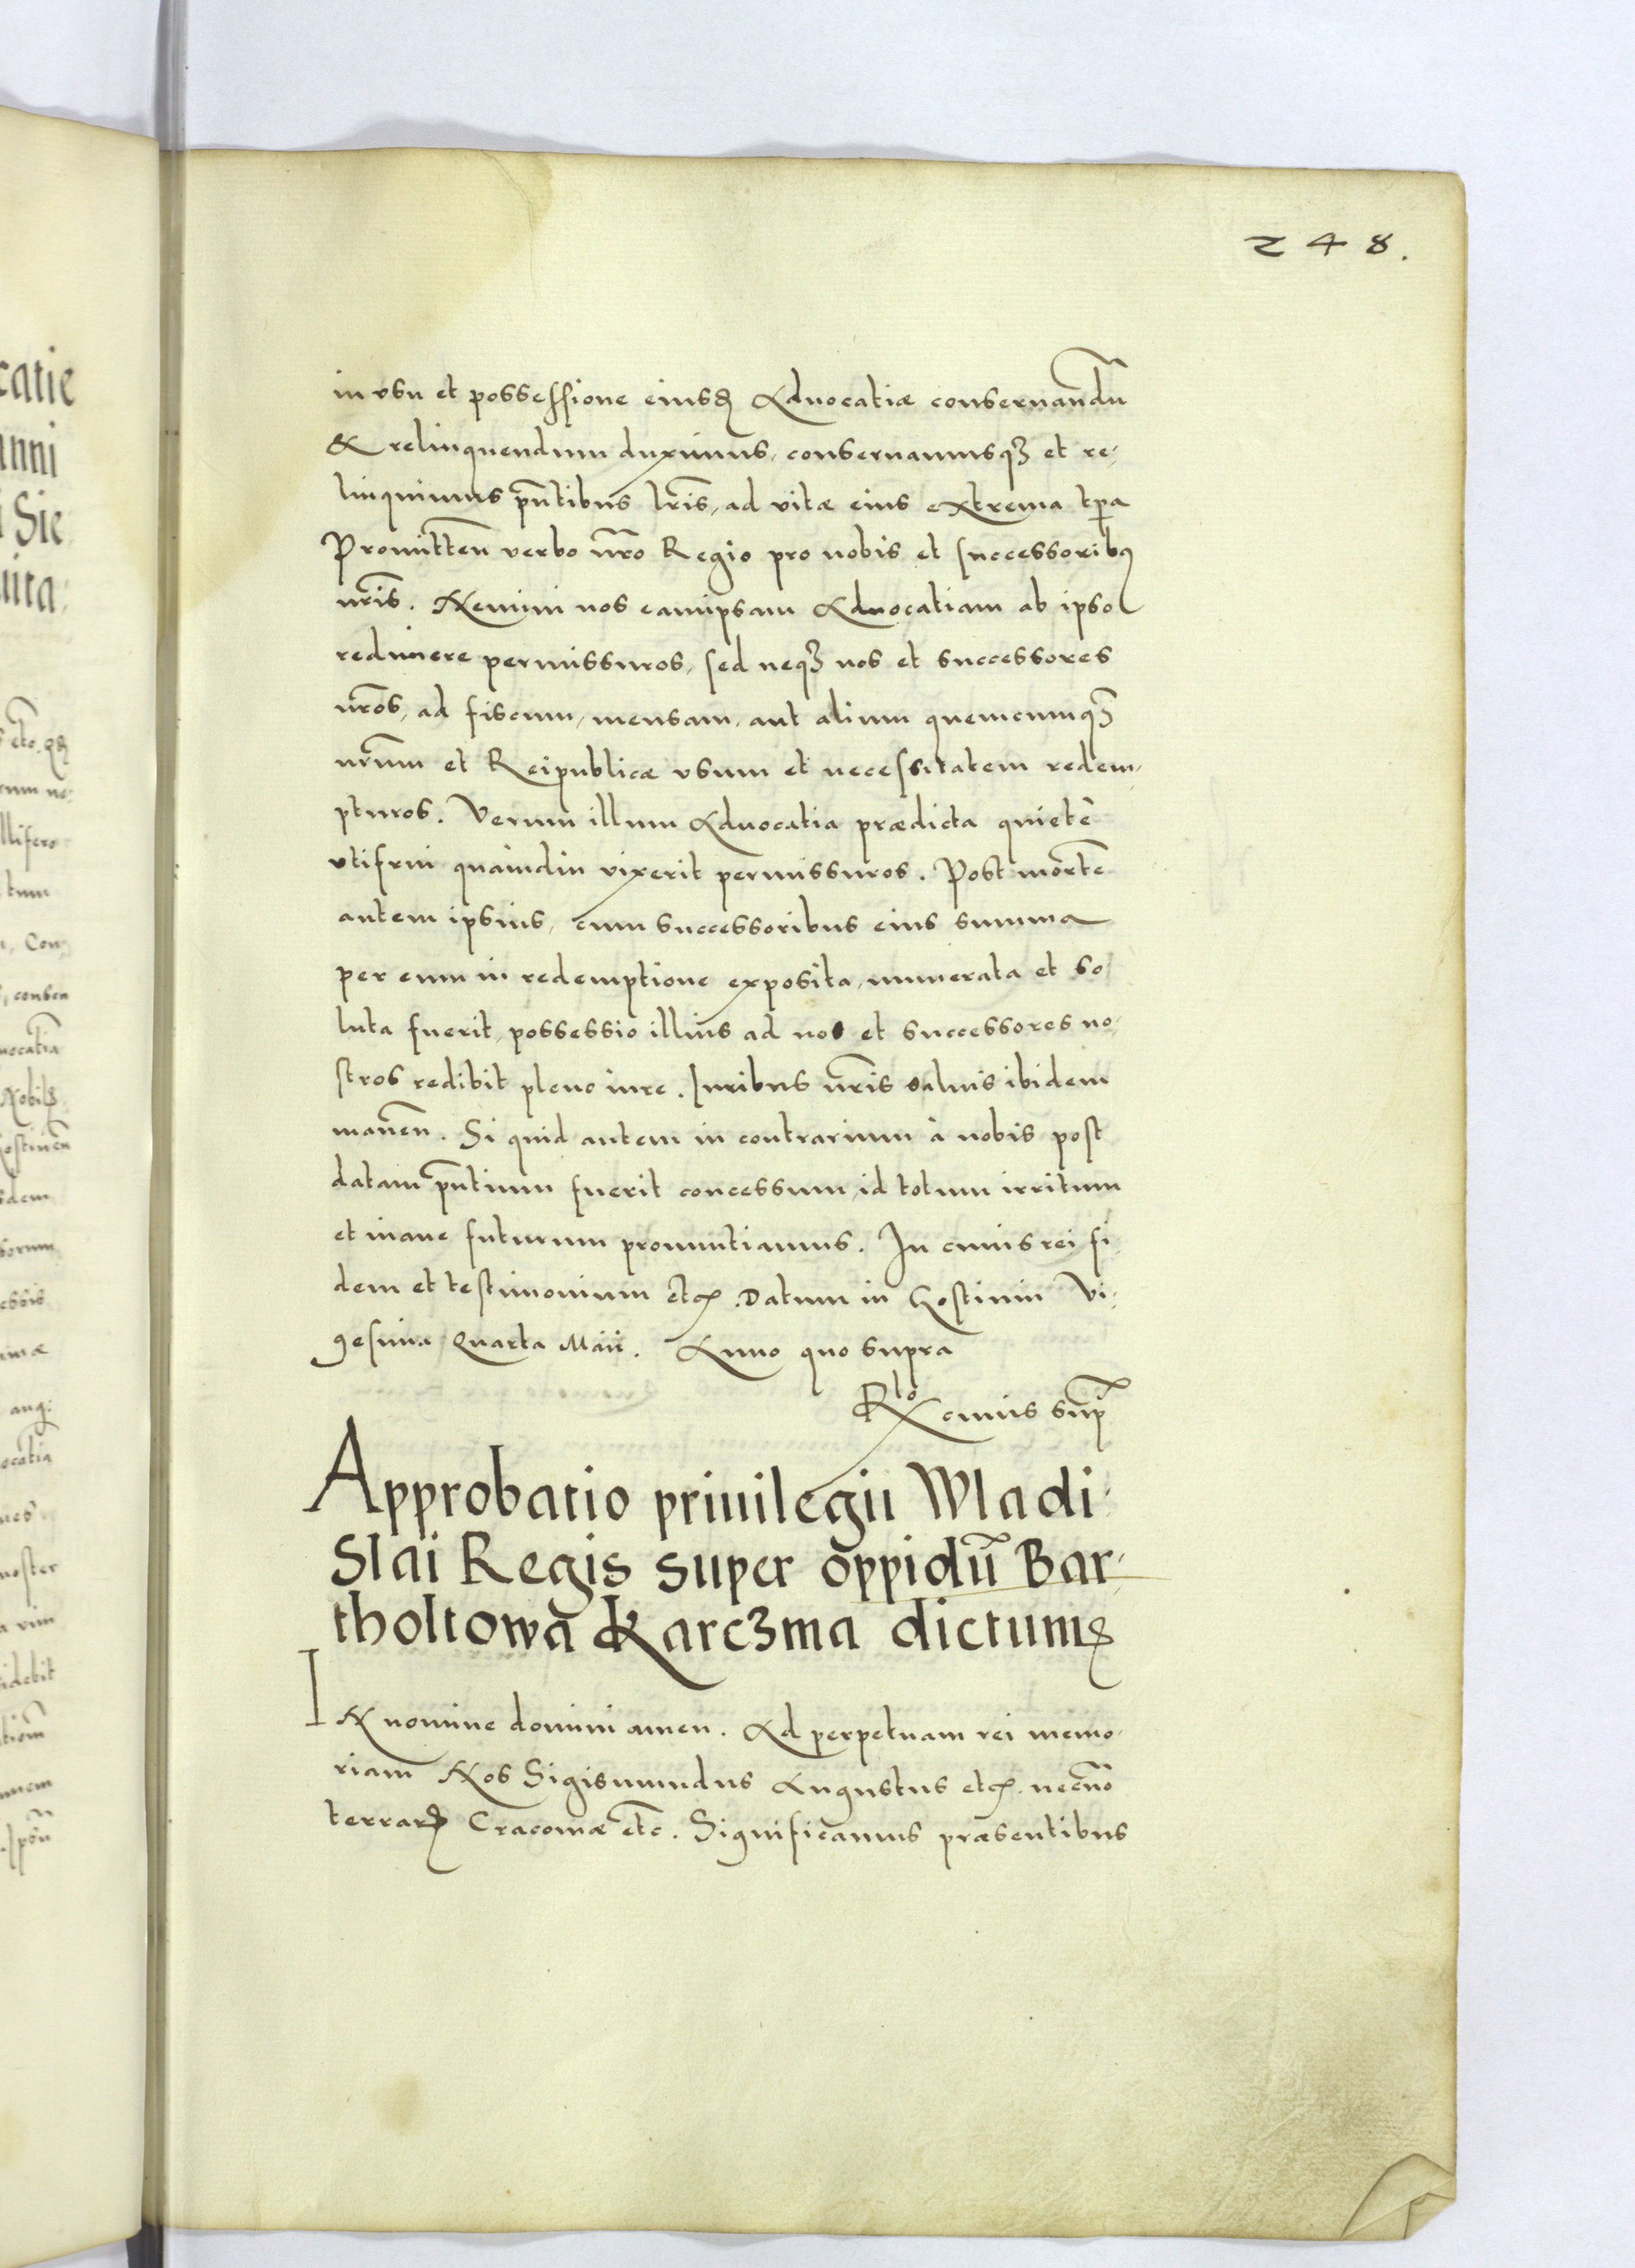 248.
in vsu et possessione eiusd Aduocatiæ conseruandũ
& relinquendum duximus, conseruamusqʒ et re-
linquimus pñtibus lris, ad vitæ eius extrema tpa
Promitteñ verbo nro Regio pro nobis et successoribꝰ
nris. Nemini nos eamipsam Aduocatiam ab ipso
redimere permissuros, sed neqʒ nos et successores
nros, ad fiscum, mensam, aut alium quemcumqʒ
nrum et Reipublicæ vsum et necessitatem redem-
pturos. Verum illum Aduocatia prædicta quietè
vtifrui quàmdiu vixerit permissuros. Post mortẽ
autem ipsius, cum successoribus eius summa
per eum in redemptione exposita, numerata et so-
luta fuerit, possessio illius ad nos et successores no-
stros redibit pleno iure. Iuribus nris saluis ibidem
maneñ. Si quid autem in contrarium à nobis post
datam pñtium fuerit concessum, id totum irritum
et inane futurum pronuntiamus. In cuius rei fi-
dem et testimonium etc. Datum in Gostinin Vi-
gesima Quarta Maii. Anno quo supra
Rlo cuius sup
Approbatio priuilegii Wladi-
Slai Regis super oppidũ Bar-
tholtowa Karczma dictum
IN nomine domini amen. Ad perpetuam rei memo-
riam Nos Sigismundus Augustus etc. necno
terrarꝝ Cracouiæ etc. Significamus præsentibus
catie
anni
Sie